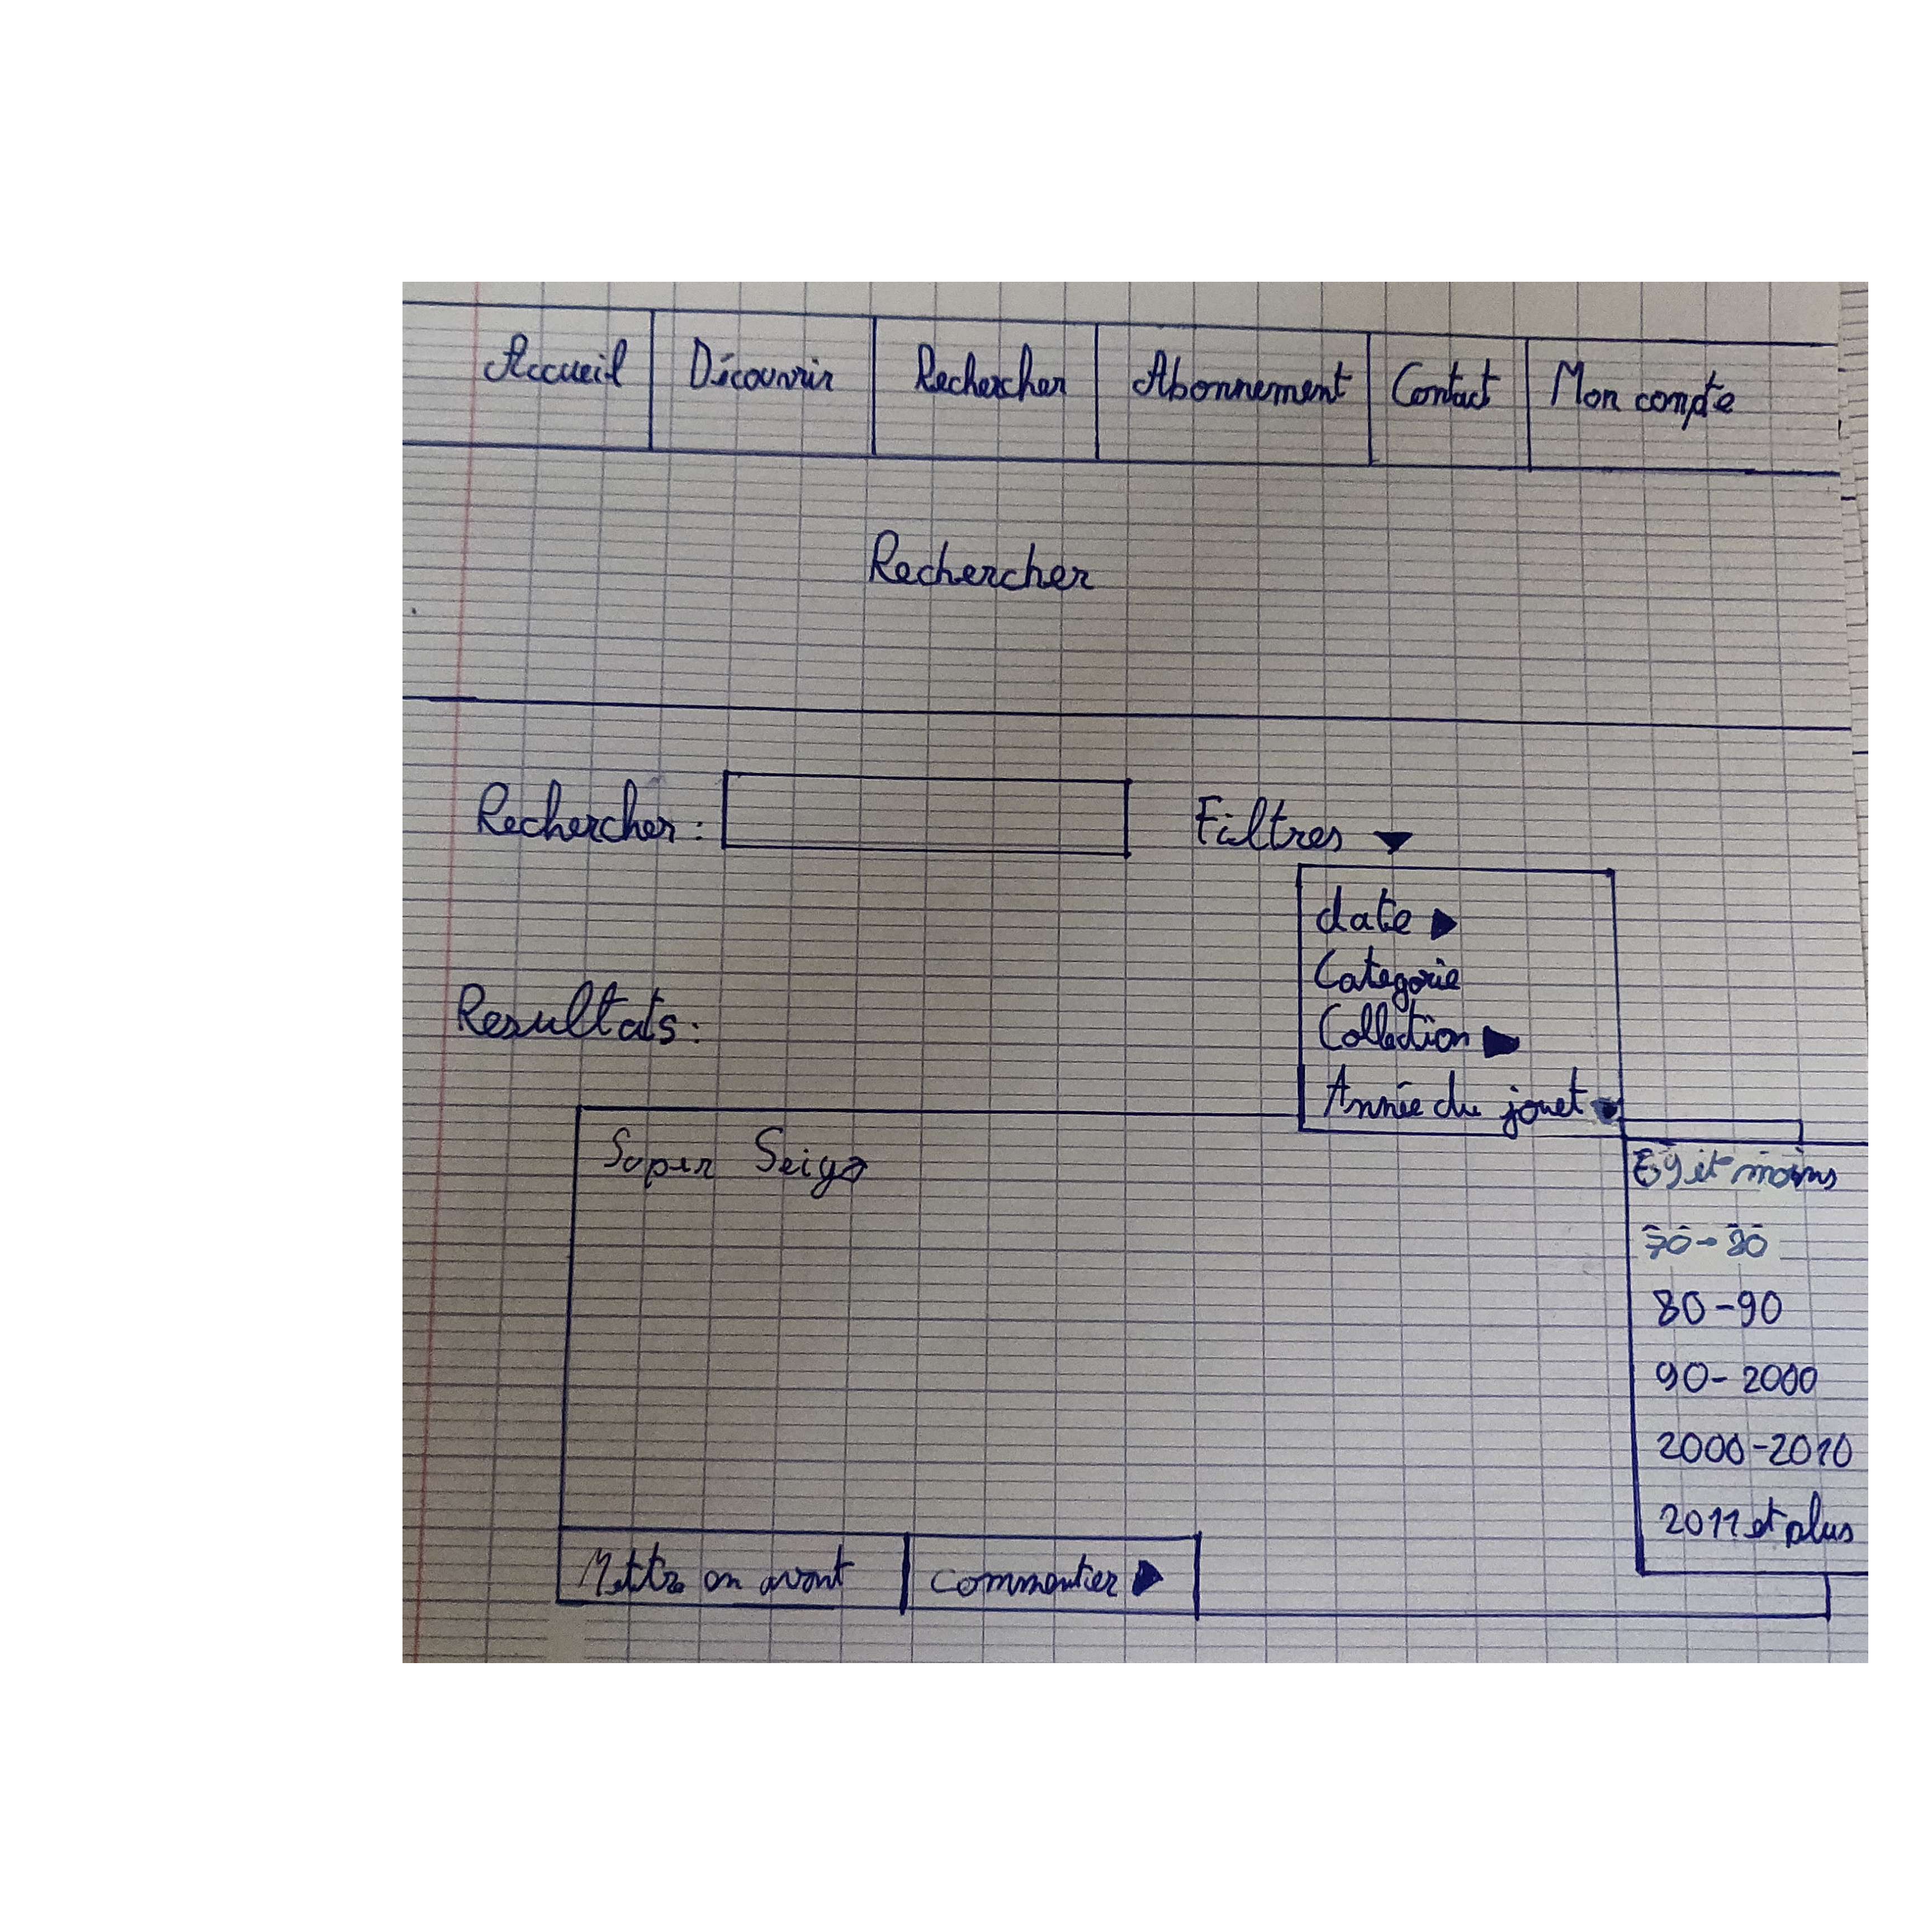 Accueil Découvrir Rechercher Abonnement Contact Mon compte
Rechercher
Rechercher : Filtres
date
Categorie
Collection
Resultats :
Année du jouet
Super Seiga
69 et moins
70-80
80-90
90-2000
2000-2010
2011 et plus
Mettre en avant commenter